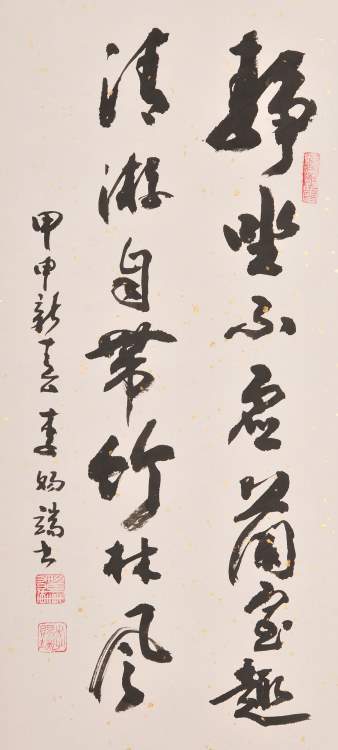 靜坐不虛蘭室趣
清遊自帶竹林風
甲申新春李鴻端書